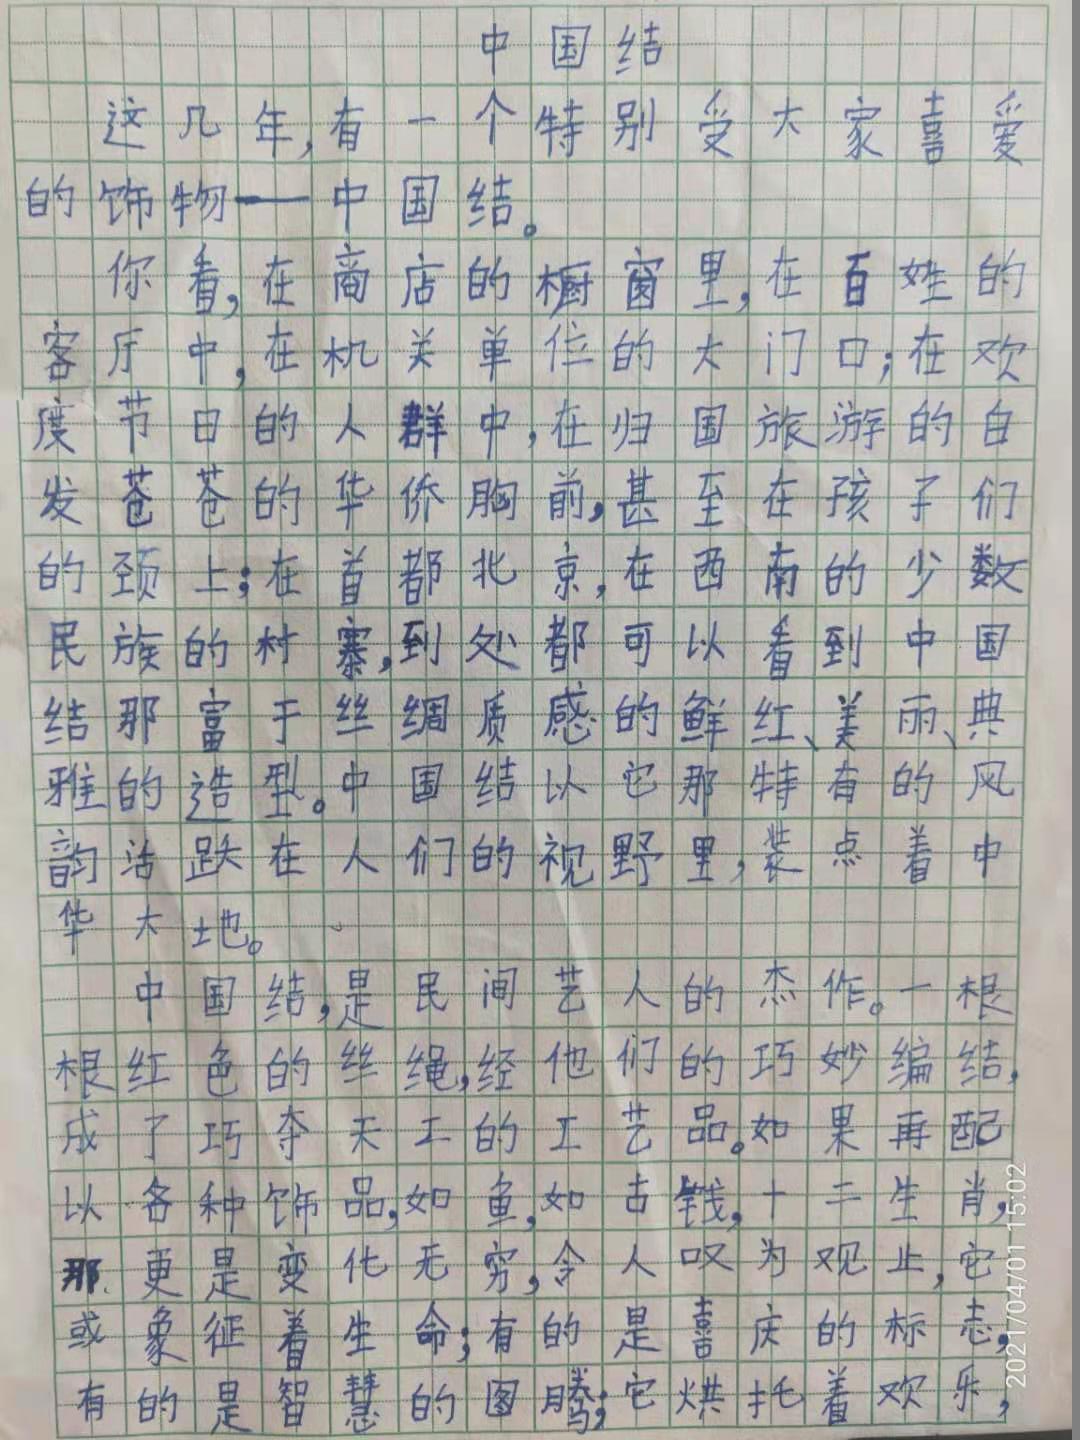 中国结
这几年,有一个特别受大家喜爱
的饰物——中国结。
你看,在商店的橱窗里,在百姓的
客厅中,在机关单位的大门口;在欢
度节日的人群中,在归国旅游的白
发苍苍的华侨胸前,甚至在孩子们
的颈上;在首都北京,在西南的少数
民族的村寨,到处都可以看到中国
结那富于丝绸质感的鲜红、美丽、典
雅的造型。中国结以它那特有的风
韵活跃在人们的视野里,装点着中
华大地。
中国结,是民间艺人的杰作。一根
根红色的丝绳,经他们的巧妙编结,
成了巧夺天工的工艺品。如果再配
以各种饰品,如鱼,如古钱,十二生肖,
那更是变化无穷,令人叹为观止,它
或象征着生命;有的是喜庆的标志,
有的是智慧的图腾;它烘托着欢乐,
2021/04/01 15:02